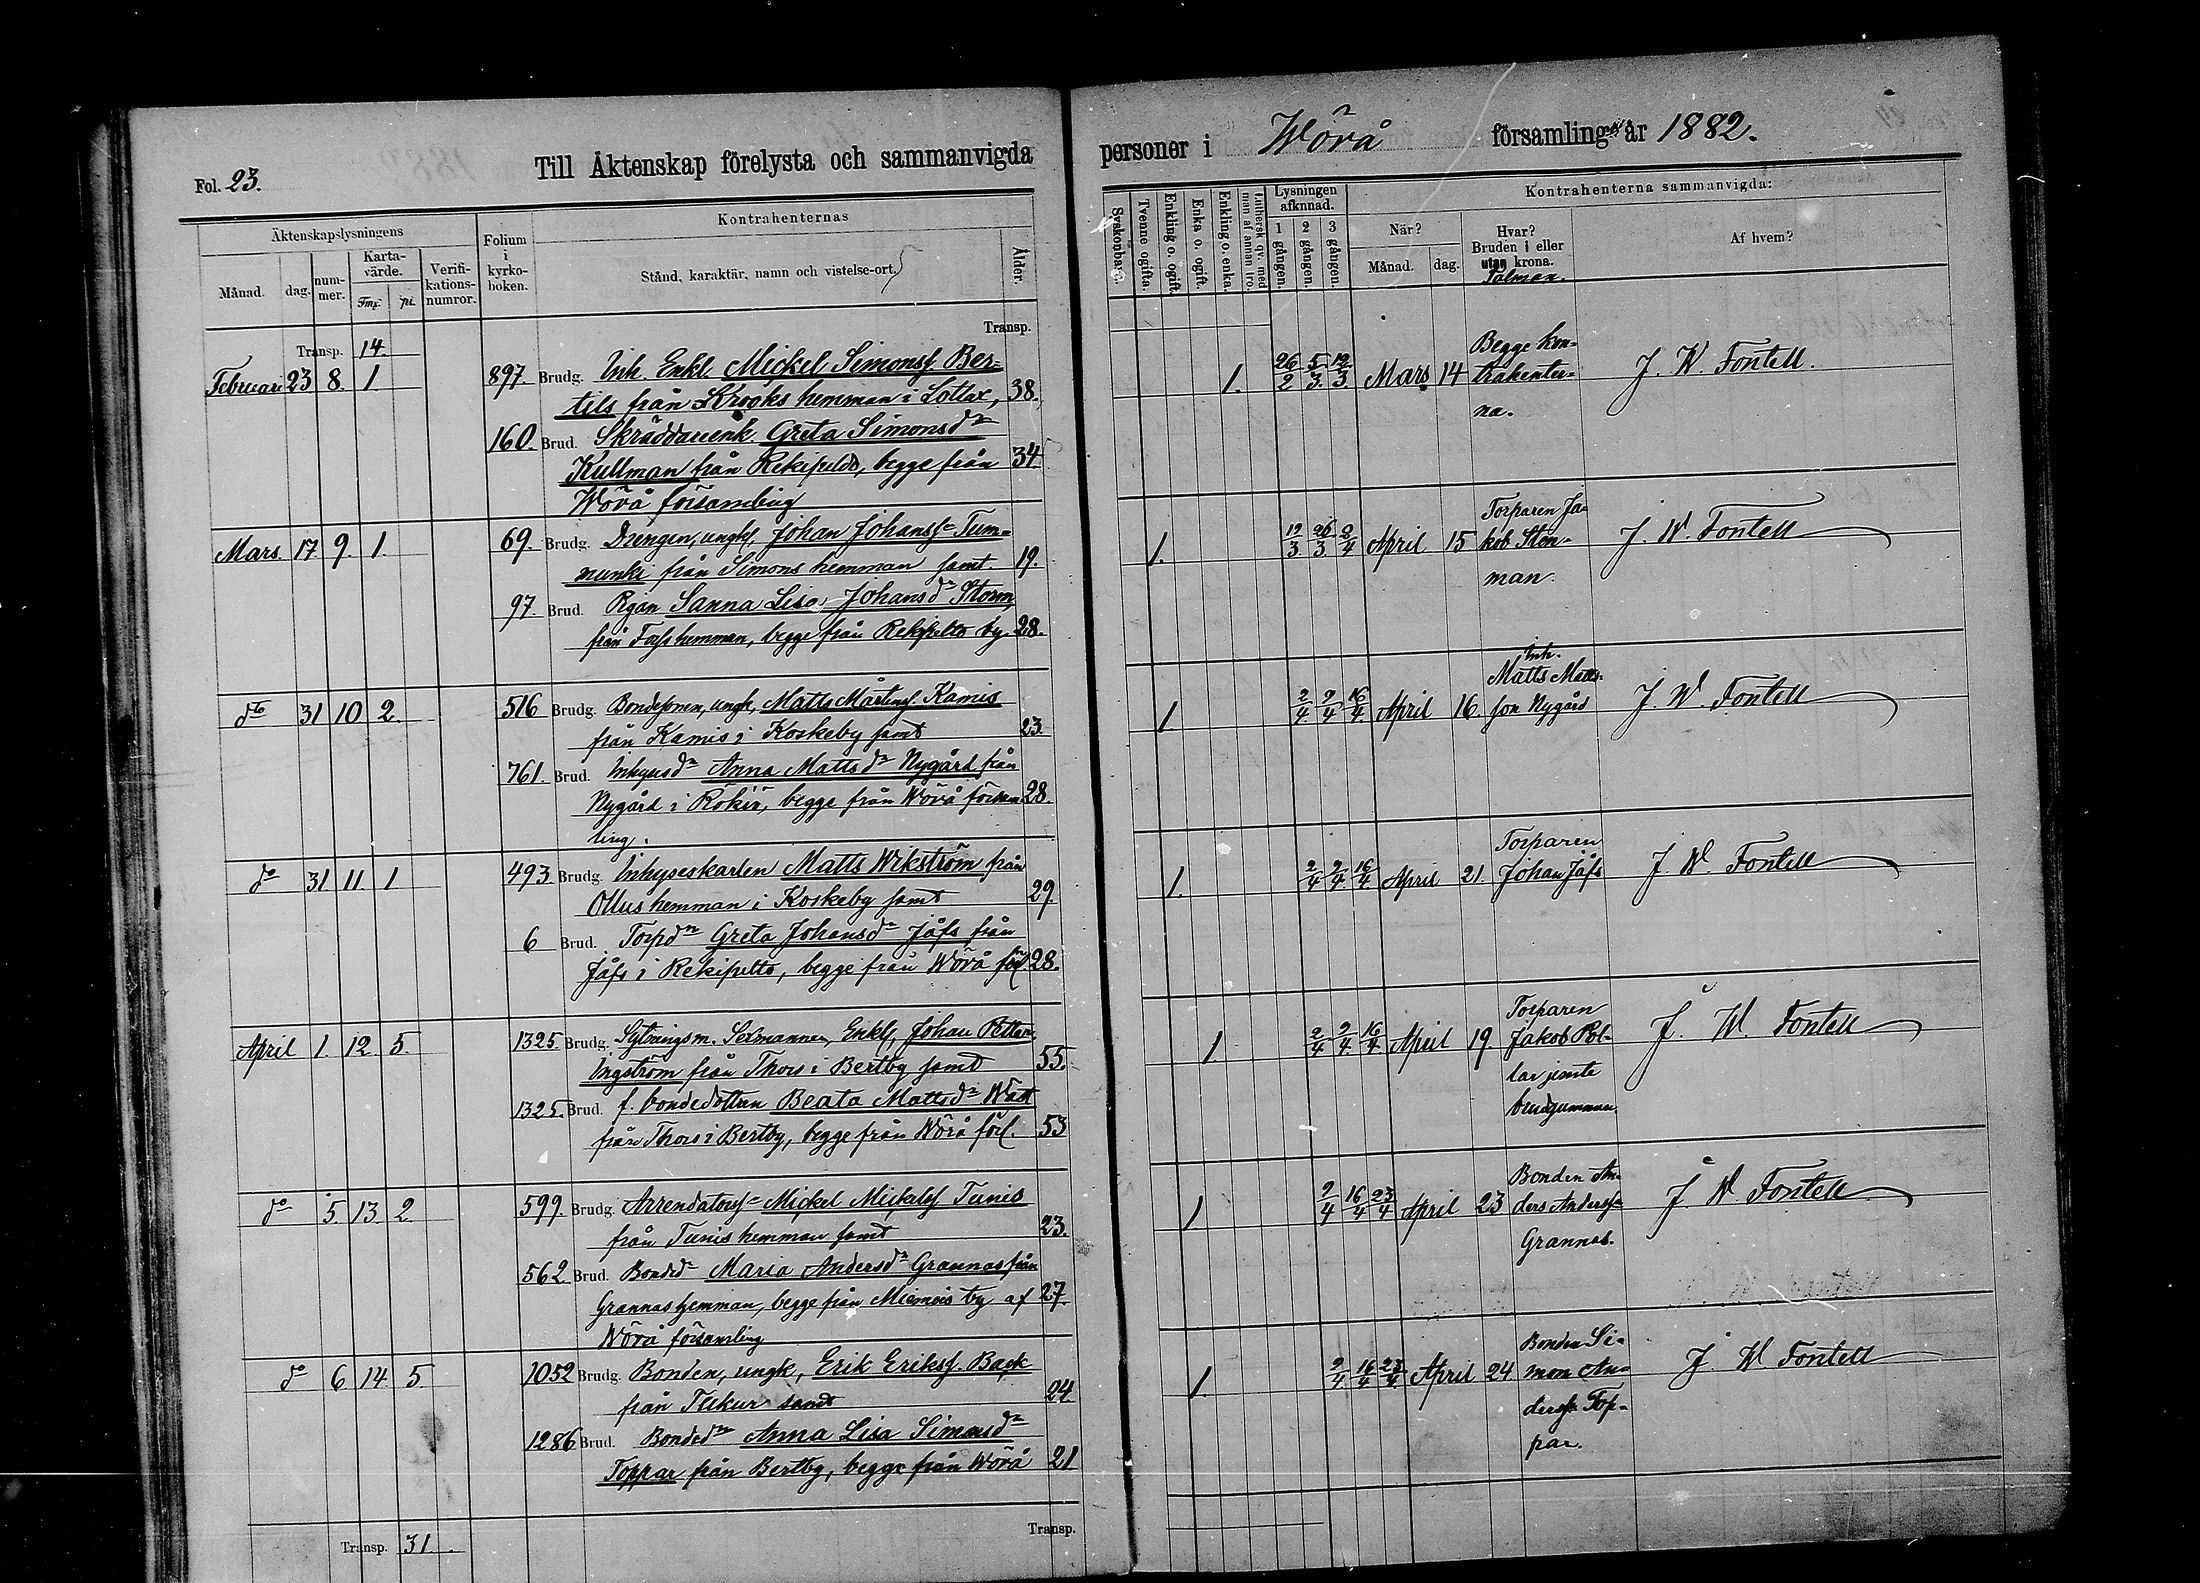 Fol. 23.
Till Äktenskap förelysta och sammanvigda
Äktenskapslysningens
Månad.
dag.
num-
mer.
Karta-
värde.
Fmk
pi.
Verifi-
kations-
numror.
Folium
i
kyrko-
boken.
Kontrahenternas
Stånd, karaktär, namn och vistelse-ort.
Ålder.
Transp.
Transp. 14.
Februari 23 8. 1. 897. Brudg. Inh. Enkl Mickel Simonsf. Ber-
tils från Krooks hemman i Lottax, 38.
160. Brud. Skräddarenk. Greta Simonsdr
Kullman från Rekipeldo, begge från 34
Wörå församling
Mars 17 9. 1. 69. Brudg. Drengen, ungk, Johan Johansf Tum-
nunki från Simons hemman samt 19.
97. Brud. Pgan Sanna Lisa Johansdr Storm
från Fors hemman, begge från Rekipelto by. 28.
do 31 10 2. 516 Brudg. Bondesonen, ungk, Matts Mårtensf. Kamis
från Kamis i Koskeby samt 23.
761. Brud. Inhysesdr Anna Mattsdr Nygård från
Nygård i Rökiö, begge från Wörå försam 28.
ling.
do 31 11 1 493. Brudg. Inhyseskarlen Matts Wikström från
Ollus hemman i Koskeby samt 29.
6 Brud. Torpdr Greta Johansdr Jåfs från
Jåfs i Rekipelto, begge från Wörå förs 28.
April 1. 12. 5. 1325. Brudg. Sytningsm. Enkl, Johan Petter
Ingström från Thors i Bertby samt 55.
1325. Brud. f. bondedottren Beata Mattsdr Wäst
från Thors i Bertby, begge från Wörå förs. 53
do 5. 13. 2. 599. Brudg. Arrendatorsf Mickel Mickelsf Tunis
från Tunis hemman samt 23.
562. Brud. Bondedr Maria Andersdr Grannas från
Grannas hemman, begge från Miemois by af 27.
Wörå församling
do 6 14. 5. 1052 Brudg. Bonden, ungk, Erik Eriksf. Back
från Tuckur samt 24.
1286 Brud. Bondedr Anna Lisa Simonsdr
Toppar från Bertby, begge från Wörå 21
Transp. 31.
Transp.
personer i Wörå församling år 1882.
Svskonbarn.
Tvenne ogifta.
Enkling o. ogift.
Enka o. ogift.
Enkling o. enka.
Luthersk qv. med
man af annan tro.
Lysningen
afkunnad.
1 gången.
2 gången.
3 gången.
Kontrahenterna sammanvigda:
När?
Månad.
dag.
Hvar?
Bruden i eller
utan krona.
Talman.
Af hvem?
1. 26/2 5/3 12/3 Mars 14 Begge kon-
trahenter-
na.
J. W. Fontell.
1. 12/3 26/3 2/4 April 15 Torparen Ja-
kob Sten-
man.
J. W. Fontell
1. 2/4 9/4 16/4 April 16. Inh.
Matts Matts-
son Nygård
J. W. Fontell
1. 2/4 9/4 16/4 April 21. Torparen
Johan Jåfs
J. W. Fontell
1 2/4 9/4 16/4 April 19. Torparen
Jakob Pol-
lar jemte
brudgummen
J. W. Fontell
1. 9/4 16/4 23/4 April 23 Bonden An-
ders Andersf
Grannas.
J. W. Fontell
1. 9/4 16/4 23/4 April 24 Bonden Si-
mon An-
dersf Top-
par.
J. W. Fontell